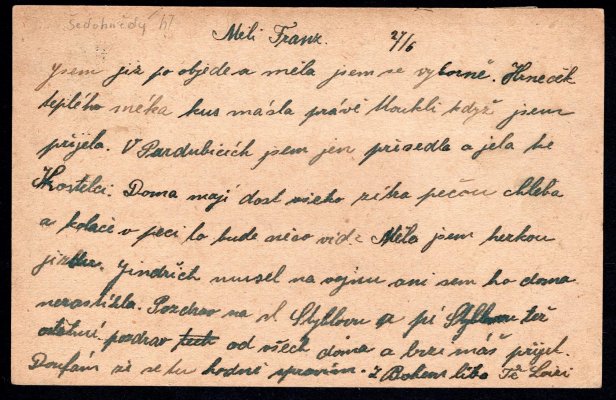 Šedohnědý
Milí Franz. 27/6
jsem již po objede a měla jsem se vyborně. Hrneček
teplého méka kus másla právě tloukli když jsem
přijela. V Pardubicích jsem jen přisedla a jela ke
Kostelci. Doma mají dost všeko zitra pečou chleba
a kolače v peci to bude něco vid. Měla jsem hezkou
jizdu. Jindřich musel na vojnu ani sem ho doma
nezastihla. Pozdrav na sl. a pí též
ostatní pozdrav od všech doma a brzi máš přijet.
Doufám že se tu hodně spravím. Z Bohem líba Tě